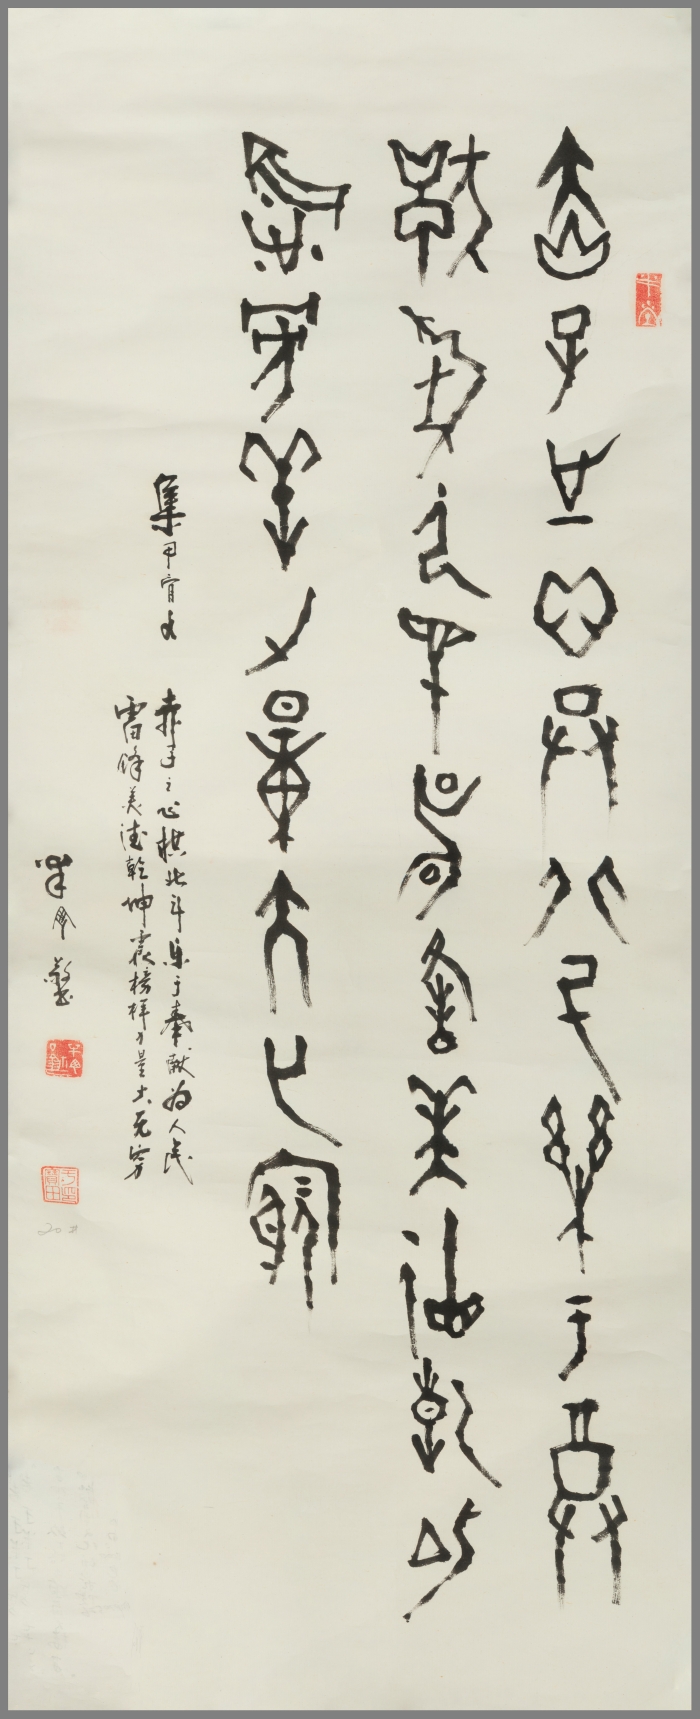 赤子之心共北斗乐于奉
献为人民雷锋美德乾坤
震榜样力量大无穷
集甲骨文 赤子之心拱北斗乐于奉献为人民
雷锋美德乾坤震榜样力量大无穷